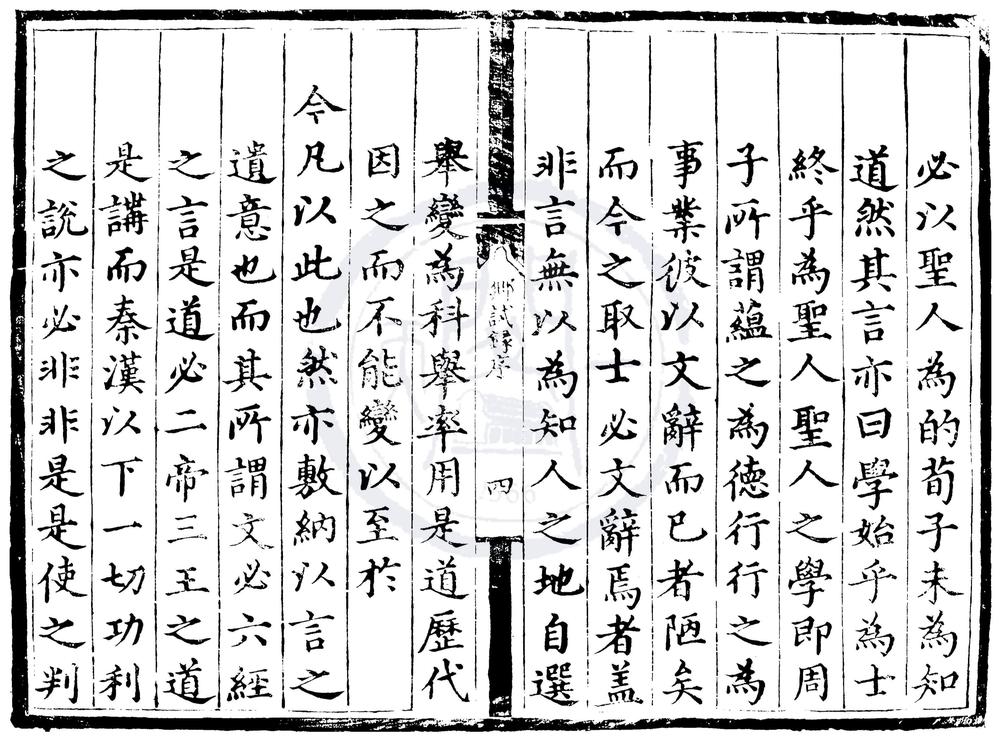 必以聖人為的荀子未為知
道然其言亦曰學始乎為士
終乎為聖人聖人之學即周
子所謂蘊之為德行行之為
事業彼以文辭而已者陋矣
而今之取士必文辭焉者盖
非言無以為知人之地自選
鄉試錄序 四
舉變為科舉率用是道歷代
因之而不能變以至於
今凡以此也然亦敷納以言之
遺意也而其所謂文必六經
之言是道必二帝三王之道
是講而秦漢以下一切功利
之說亦必非非是是使之判